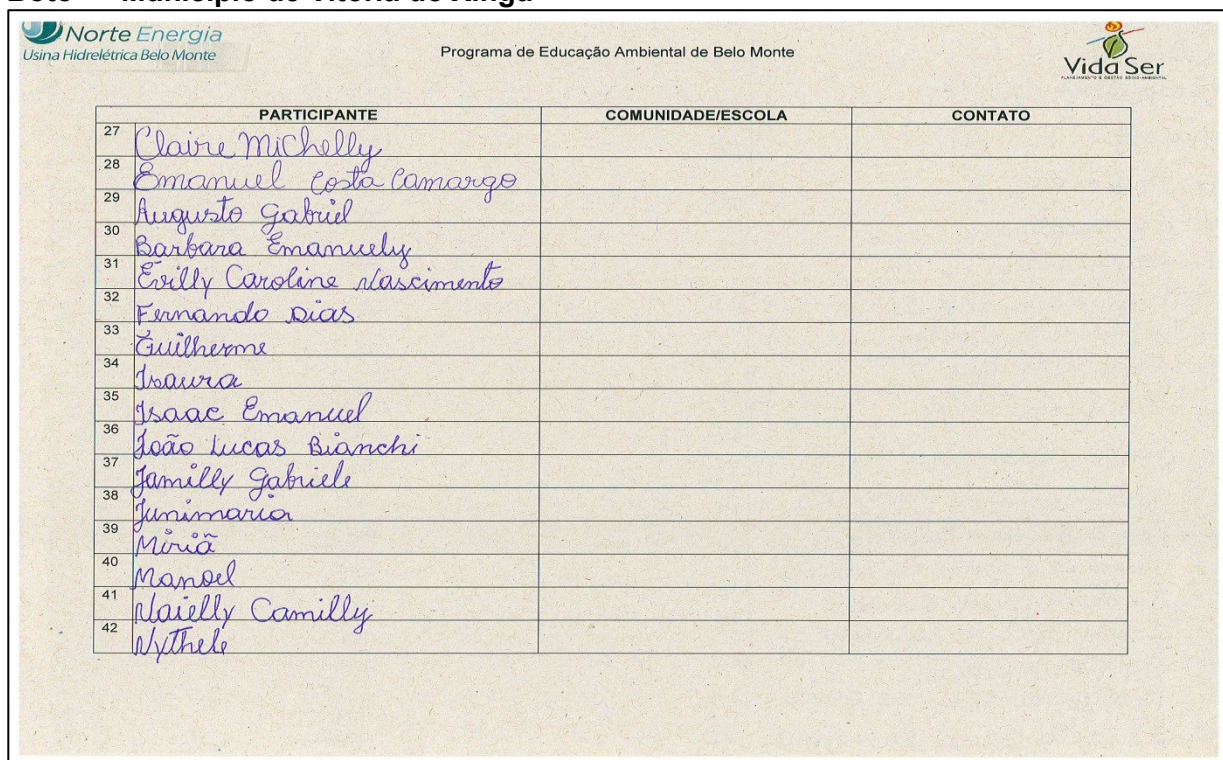 Norte Energia
Usina Hidrelétrica Belo Monte
Programa de Educação Ambiental de Belo Monte
Vida Ser
PLANEJAMENTO E GESTÃO SÓCIO-AMBIENTAL
PARTICIPANTE COMUNIDADE/ESCOLA CONTATO
27 Claire Michelly
28 Emanuel Costa Camargo
29 Augusto Gabriel
30 Barbara Emanuely
31 Evilly Caroline Nascimento
32 Fernando Dias
33 Guilherme
34 Isaura
35 Isaac Emanuel
36 João Lucas Bianchi
37 Jamilly Gabriele
38 Junimaria
39 Miriã
40 Manoel
41 Naielly Camilly
42 Nythele